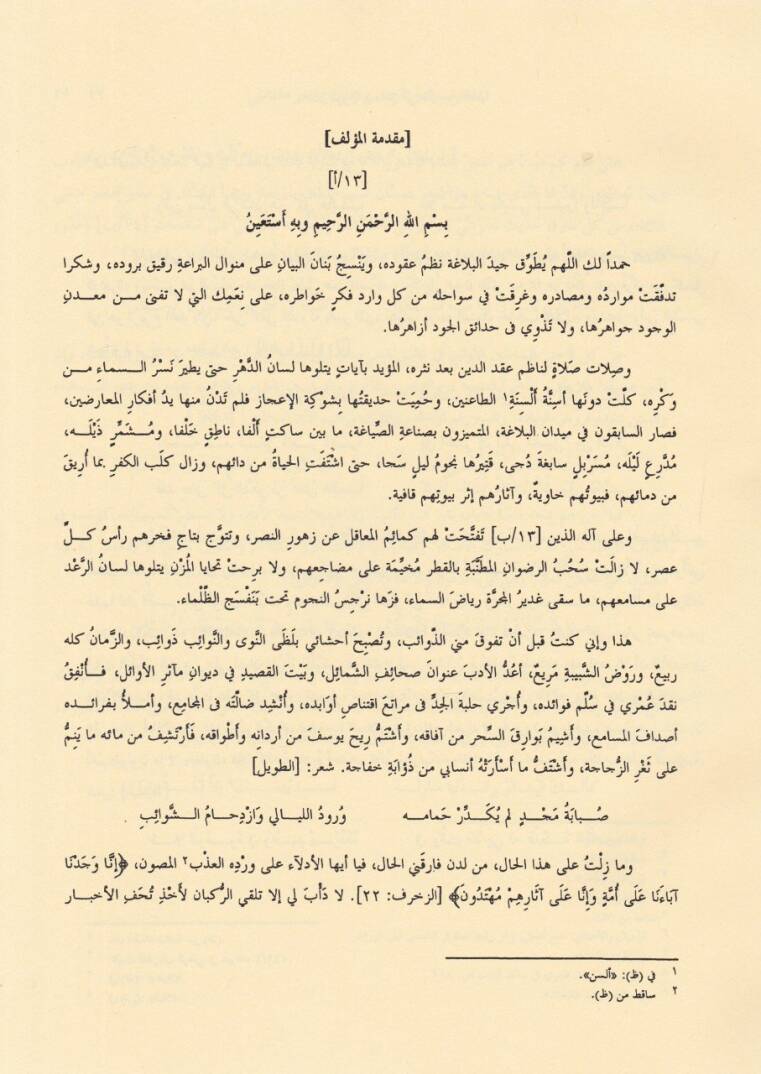 [مقدمة المؤلف]
[١٣/أ]
بِسْمِ اللهِ الرَّحْمَنِ الرَّحِيمِ وبِهِ أَسْتَعَينُ
حمداً لك اللّهم يُطَوِّق جيدَ البلاغة نظمُ عقوده، ويَنْسِجُ بَنانَ البيانِ على منوال البراعةِ رقيق بروده، وشكرا
تدفّقَتْ مواردُه ومصادره وغرِقَتْ في سواحله من كل وارد فكرٍ خَواطره، على نِعَمِك التي لا تفنى مـــن معـــدنِ
الوجود جواهرُها، ولا تَذْوِي في حدائق الجود أزاهرُها.
وصِلات صَلاةٍ لناظم عقد الدين بعد نثره، المؤيد بآياتٍ يتلوها لسانُ الدَّهْرِ حتى يطيرَ نَسْرُ الـــسماءِ مـــن
وَكْرِه، كلّتْ دونَها أسِنَّةُ أَلْسِنَةِ١ الطاعنين، وحُمِيَتْ حديقتُها بِشوْكةِ الإعجاز فلم تَدْنُ منها يدُ أفكارِ المعارضين،
فصار السابقون في ميدان البلاغة، المتميزون بصناعةِ الصِّياغة، ما بين ساكتٍ أَلْفا، ناطقٍ خَلْفا، ومُـــشَمِّرٍ ذَيْلَـــه،
مُدَّرِعٍ لَيْلَه، مُسَرْبِلٍ سابغةَ دُجى، قَتِيرُها نجومُ ليلٍ سَحا، حتى اشْتَفَتِ الحياةُ من دائهم، وزال كلَب الكفرِ بما أُرِيقَ
من دمائهم، فبيوتُهم خاويةٌ، وآثارُهم إثر بيوتِهم قافية.
وعلى آله الذين [١٣/ب] تَفتَّحَتْ لهم كمائِمُ المعاقل عن زهورِ النصر، وتتوَّج بتاجِ فخرهم رأسُ كـــلِّ
عصر، لا زالَتْ سُحُبُ الرضوانِ المطنَّبَةِ بالقطر مُخيِّمَة على مضاجعهم، ولا برِحتْ تحايا المُزْنِ يتلوها لسانُ الرَّعْد
على مسامعهم، ما سقى غديرُ المجرَّة رياضَ السماء، فزَها نرْجِسُ النجوم تحت بَنَفْسَج الظّلْماء.
هذا وإني كنتُ قبل أنْ تفوقَ مني الذّوائب، وتُصْبِحَ أحشائي بلَظَى النَّوى والنَّوائِب ذَوائِب، والزَّمانُ كله
ربيعٌ، ورَوْضُ الشَّبيبةِ مَرِيعٌ، أعُدُّ الأدبَ عنوانَ صحائِفِ الشَّمائِل، وبَيْتَ القصيدِ في ديوانِ مآثرِ الأوائل، فـــأُنْفِقُ
نقدَ عُمْري في سُلّم فوائده، وأُجْري حلبةَ الجِدِّ في مراتعَ اقتناصِ أوَابده، وأُنْشِد ضالّتَه في المجامِع، وأمـــلأُ بفرائـــده
أصدافَ المسامع، وأَشِيمُ بَوارِقَ السِّحر من آفاقه، وأَشْتَمُّ رِيحَ يوسفَ من أردانِه وأَطْواقه، فَأَرْتَشِفُ من مائه ما يَنِمُّ
على ثَغْرِ الزُّجاجة، وأَشْتَفُّ ما أَسْأَرَتْهُ أنسابي من ذُؤَابَةِ خفاجة. شعر: [الطويل]
صُـبابَةُ مَـجْـدٍ لم يُـكَـدِّرْ حَمامـه وُرودُ الليـالي وَازْدِحـامُ الشّـوائِبِ
وما زِلْتُ على هذا الحال، من لدن فارَقَني الحال، فيا أيها الأدلاّء على ورْدِه العذْب٢ المصون، ﴿إِنَّا وَجَدْنَا
آبَاءَنَا عَلَى أُمَّةٍ وَإِنَّا عَلَى آثَارِهِمْ مُهْتَدُونَ﴾ [الزخرف: ٢٢]. لا دَأْبَ لي إلا تلقي الرُّكبان لأَخْذِ تُحَفِ الأخبار
١ في (ظ): «ألسن».
٢ ساقط من (ظ).